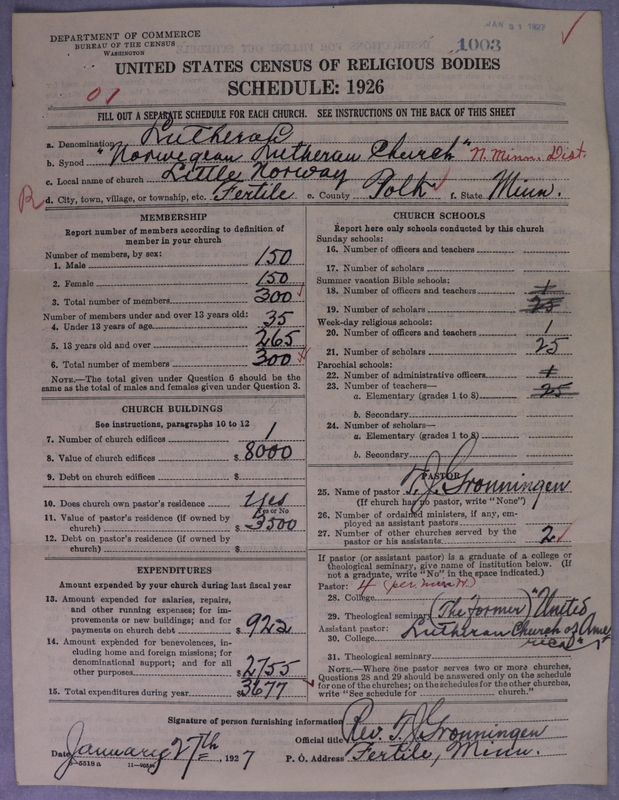 DEPARTMENT OF COMMERCE
BUREAU OF THE CENSUS
WASHINGTON
JAN 31 1927
1003
UNITED STATES CENSUS OF RELIGIOUS BODIES
SCHEDULE: 1926
01
FILL OUT A SEPARATE SCHEDULE FOR EACH CHURCH. SEE INSTRUCTIONS ON THE BACK OF THIS SHEET
a. Denomination Lutheran
b. Synod "Norwegean Lutheran Church" N. Minn. Dist.
c. Local name of church Little Norway
R d. City, town, village, or township, etc. Fertile e. County Polk f. State Minn.
MEMBERSHIP
Report number of members according to definition of
member in your church
Number of members, by sex:
1. Male 150
2. Female 150
3. Total number of members 300
Number of members under and over 13 years old:
4. Under 13 years of age 35
5. 13 years old and over 265
6. Total number of members 300
NOTE.—The total given under Question 6 should be the
same as the total of males and females given under Question 3.
CHURCH BUILDINGS
See instructions, paragraphs 10 to 12
7. Number of church edifices 1
8. Value of church edifices $ 8000
9. Debt on church edifices $
10. Does church own pastor's residence Yes
Yes or No
11. Value of pastor's residence (if owned by
church) $ 3500
12. Debt on pastor's residence (if owned by
church) $
EXPENDITURES
Amount expended by your church during last fiscal year
13. Amount expended for salaries, repairs,
and other running expenses; for im-
provements or new buildings; and for
payments on church debt $ 922
14. Amount expended for benevolences, in-
cluding home and foreign missions; for
denominational support; and for all
other purposes $ 2755
15. Total expenditures during year $ 3677
CHURCH SCHOOLS
Report here only schools conducted by this church
Sunday schools:
16. Number of officers and teachers
17. Number of scholars
Summer vacation Bible schools:
18. Number of officers and teachers 1
19. Number of scholars 25
Week-day religious schools:
20. Number of officers and teachers 1
21. Number of scholars 25
Parochial schools:
22. Number of administrative officers 1
23. Number of teachers—
a. Elementary (grades 1 to 8) 25
b. Secondary
24. Number of scholars—
a. Elementary (grades 1 to 8)
b. Secondary
PASTOR
25. Name of pastor T. J. Gronningen
(If church has no pastor, write "None")
26. Number of ordained ministers, if any, em-
ployed as assistant pastors
27. Number of other churches served by the
pastor or his assistants 2
If pastor (or assistant pastor) is a graduate of a college or
theological seminary, give name of institution below. (If
not a graduate, write "No" in the space indicated.)
Pastor:
28. College
29. Theological seminary (The former) "United
Assistant pastor: Lutheran Church of Ame
30. College rica"
31. Theological seminary
NOTE.—Where one pastor serves two or more churches,
Questions 28 and 29 should be answered only on the schedule
for one of the churches; on the schedules for the other churches,
write "See schedule for church."
Signature of person furnishing information Rev. T. J. Gronningen
Official title
Date January 27th, 1927 P. O. Address Fertile, Minn.